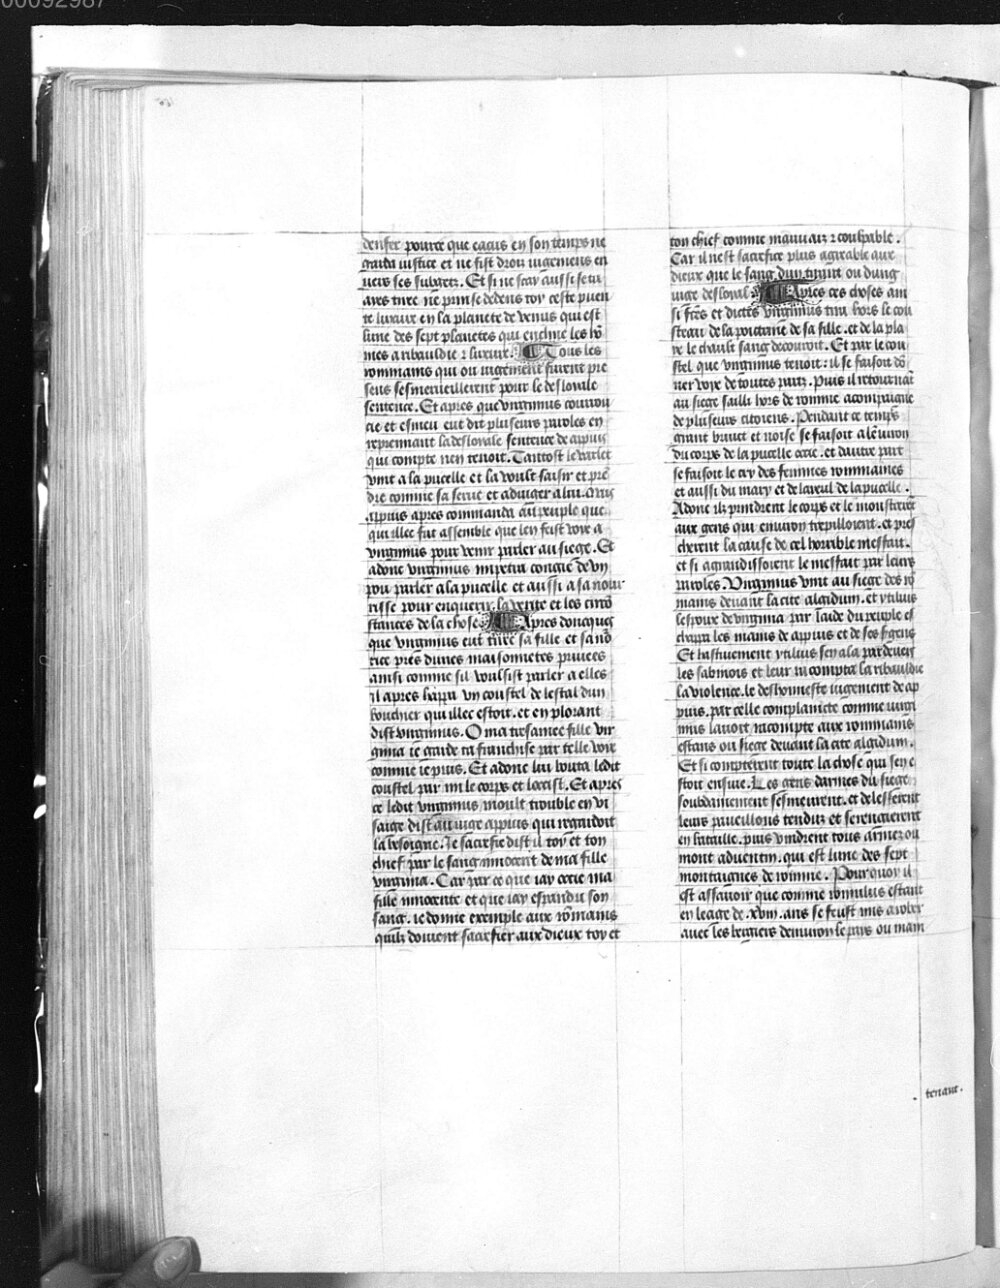 00092987
denfer pource que eacus en son temps ne
garda iustice et ne fist droit iugement en
uers ses subgetz. Et si ne scay aussi se tu
aies tiree ne prinse dedens toy ceste puen
te luxure en la planete de venus qui est
lune des sept planetes qui encline les hō
mes a ribauldie ⁊ luxure. Tous les
rommains qui ou iugement furent pre
sens sesmerueillerent pour le desloyale
sentence. Et apres que virginius courou
cie et esmeu eut dit pluseurs paroles en
reprennant la desloyale sentence de appius
qui compte nen tenoit. Tantost le varlet
vint a la pucelle et la voult saisir et prē
dre comme sa serue et adiugee a lui. Mais
appius apres commanda au peuple que
qui illec fut assemble que len feist voye a
virginius pour venir parler au siege. Et
adonc virginius impetra congie de vn
pou parler a la pucelle et aussi a sa nour
risse pour enquerir la verite et les circō
stances de la chose. Apres doncques
que virginius eut tiree sa fille et sa nō
rice pres dunes maisonnetes priuees
ainsi comme sil voulsist parler a elles
il apres happa vn coustel de lestal dun
bouchier qui illec estoit. et en plorant
dist virginius. O ma tresamee fille vir
ginia ie garde ta franchise par telle voie
comme ie puis. Et adonc lui bouta ledit
coustel par mi le corps et loccist. Et apres
ce ledit virginius moult trouble en vi
saige dist au iuge appius qui regardoit
la besoigne. Je sacrefie dist il toy et ton
chief par le sang innocent de ma fille
virginia. Car par ce que iay occie ma
fille innocente et que iay espandu son
sang. ie donne exemple aux rōmains
quilz doiuent sacrefier aux dieux toy et
ton chief comme mauuaiz ⁊ coulpable.
Car il nest sacrefice plus agreable aux
dieux que le sang dun tirant ou dung
iuge desloyal. Apres ces choses ain
si fctēs et dictes virginius tira hors le cou
steau de la poictrine de sa fille. et de la pla
ye le chault sang decouroit. Et par le cou
stel que virginius tenoit: il se faisoit dō
ner voye de toutes pars. Puis il retournāt
au siege sailli hors de romme acompaigne
de pluseurs citoiens. Pendant ce temps
grant bruit et noise se faisoit a lenuiron
du corps de la pucelle occie. et dautre part
se faisoit le cry des femmes rommaines
et aussi du mary et de laieul de la pucelle.
Adonc ilz prindrent le corps et le moustrerēt
aux gens qui enuiron trepilloient. et pres
cherent la cause de cel horrible meffait.
et si agrandissoient le meffait par leurs
paroles. Virginius vint au siege des rō
mains deuant la cite algidum. et ytilius
lespoux de virginia par laide du peuple es
chappa les mains de appius et de ses sergens
Et hastiuement ytilius sen ala par deuers
les sabinois et leur racompta la ribauldie
la violence. le deshonneste iugement de ap
puis. par celle complaincte comme virgi
nius lauoit racompte aux rommains
estans ou siege deuant la cite algidum.
Et si compterent toute la chose qui sen e
stoit ensuie. Les gens darmes du siege
soubdainement sesmeurent. et delesserent
leurs paueillons tenduz et serengierent
en bataille. puis vindrent tous armez ou
mont aduentin. qui est lune des sept
montaignes de romme. Pour quoy il
est assauoir que comme romulus estant
en leage de .xviii. ans se feust mis a voler
auec les bergiers denuiron le pays ou main
tenant.